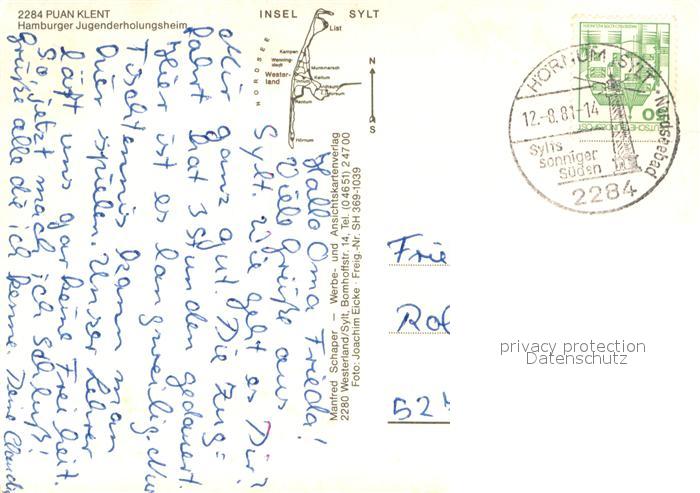 2284 PUAN KLENT
Hamburger Jugenderholungsheim
INSEL SYLT
List
NORDSEE
Kampen
Wenning-
stedt
Munkmarsch
Wester-
land
Keitum
Tinnum
Rantum
Hörnum
N
S
Hallo Oma Frieda!
Viele Grüße aus
Sylt. Wie geht es Dir?
Mir ganz gut. Die Zug=
fahrt hat 3 Stunden gedauert.
Hier ist es langweilig. Nur
Tischtennis kann man
hier spielen. Unser Lehrer
läßt uns gar keine Freiheit.
So, jetzt mach ich schluß!
Grüße alle die ich kenne. Deine Claudi
Manfred Schaper — Werbe- und Ansichtskartenverlag
2280 Westerland/Sylt, Bomhoffstr. 14, Tel. (04651) 24700
Foto: Joachim Eicke · Freig.-Nr. SH 369-1039
HÖRNUM SYLT · Nordseebad
12.-8.81-14
Sylts
sonniger
Süden
2284
60
DEUTSCHE BUNDESPOST
Frie
Rol
52
privacy protection
Datenschutz